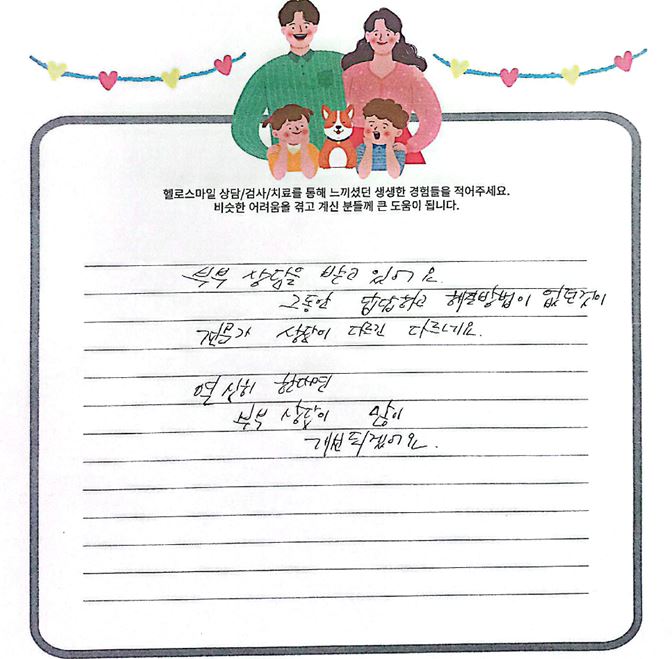 헬로스마일 상담/검사/치료를 통해 느끼셨던 생생한 경험들을 적어주세요.
비슷한 어려움을 겪고 계신 분들께 큰 도움이 됩니다.
부부 상담을 받고 있어요.
그동안 답답하고 해결방법이 없던것이
전문가 상담이 다르긴 다르네요.
열심히 한다면
부부 상담이 많이
개선되겠어요.